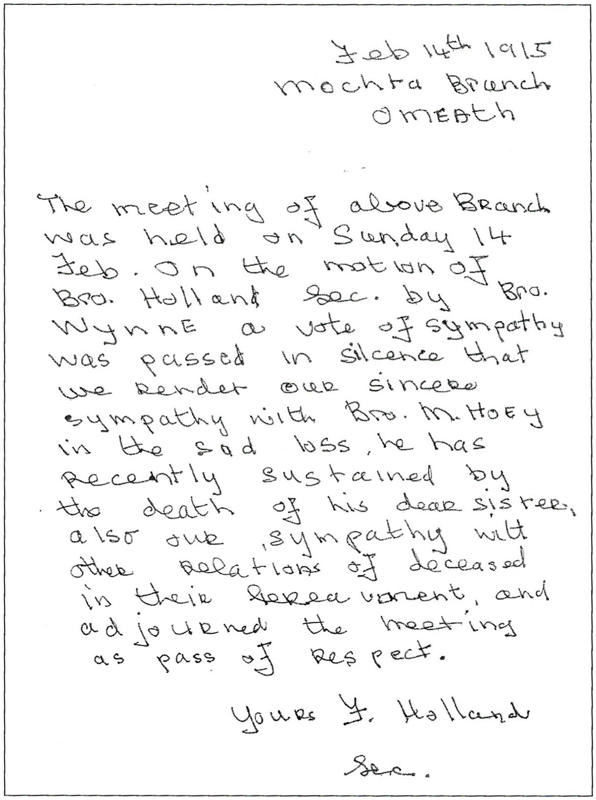 Feb 14th 1915
Mochta Branch
OMEATH
The meeting of above Branch
was held on Sunday 14
Feb. On the motion of
Bro. Holland Sec. by Bro.
Wynne a vote of sympathy
was passed in silcence that
we render our sincere
sympathy with Bro. M. Hoey
in the sad loss, he has
recently sustained by
the death of his dear sister,
also our sympathy witt
other relations of deceased
in their bereavment, and
adjourned the meeting
as pass of respect.
Yours F. Holland
Sec.